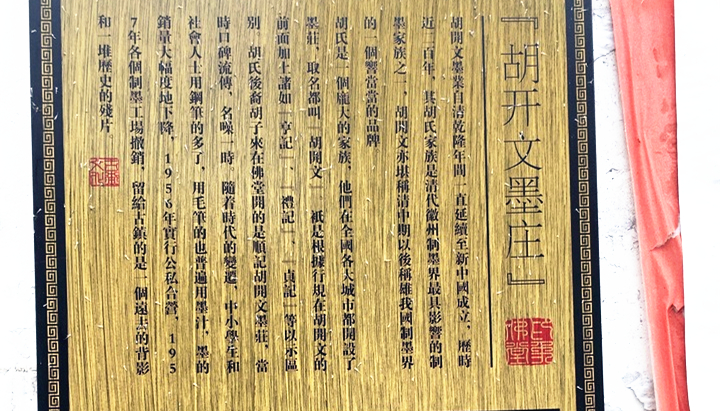 『胡开文墨庄』
胡開文墨業自清乾隆年間一直延續至新中國成立，歷時
近二百年，其胡氏家族是清代徽州制墨界最具影響的制
墨家族之一，胡開文亦堪稱清中期以後稱雄我國制墨界
的一個響當當的品牌
胡氏是一個龐大的家族，他們在全國各大城市都開設了
墨莊，取名都叫「胡開文」，衹是根據行規在胡開文的
前面加上諸如「亨記」、「禮記」、「貞記」等以示區
别，胡氏後裔胡子來在佛堂開的是順記胡開文墨莊，當
時口碑流傳，名噪一時，隨着時代的變遷，中小學生和
社會人士用鋼筆的多了，用毛筆的也普遍用墨汁，墨的
銷量大幅度地下降，1956年實行公私合營，195
7年各個制墨工場撤銷，留給古鎮的是一個遠去的背影
和一堆歷史的殘片
佛堂